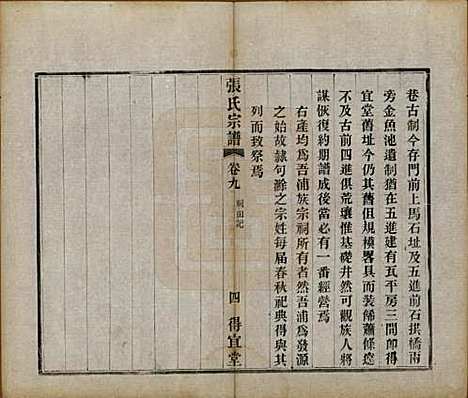 巷古制今存門前上馬石址及五進前石拱橋兩
旁金魚池遺制猶在五進建有瓦平房三間即得
宜堂舊址今仍其舊但規模畧具而裝修蕭條遠
不及古前四進俱荒壤惟基礎井然可觀族人將
謀恢復約期譜成後當必有一番經營焉
右產均爲吾浦族宗祠所有者然吾浦爲發源
之始故隷句餘之宗姓每届春秋祀典得與其
列而致祭焉
張氏宗譜
卷九
祠田記
四
得宜堂